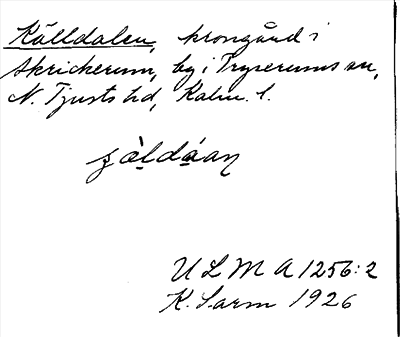 Källdalen, krongård i
Skrickerum, by i Tryserums sn,
N. Tjusts hd, Kalm. l.
ULMA 1256:2
K. Sarm 1926